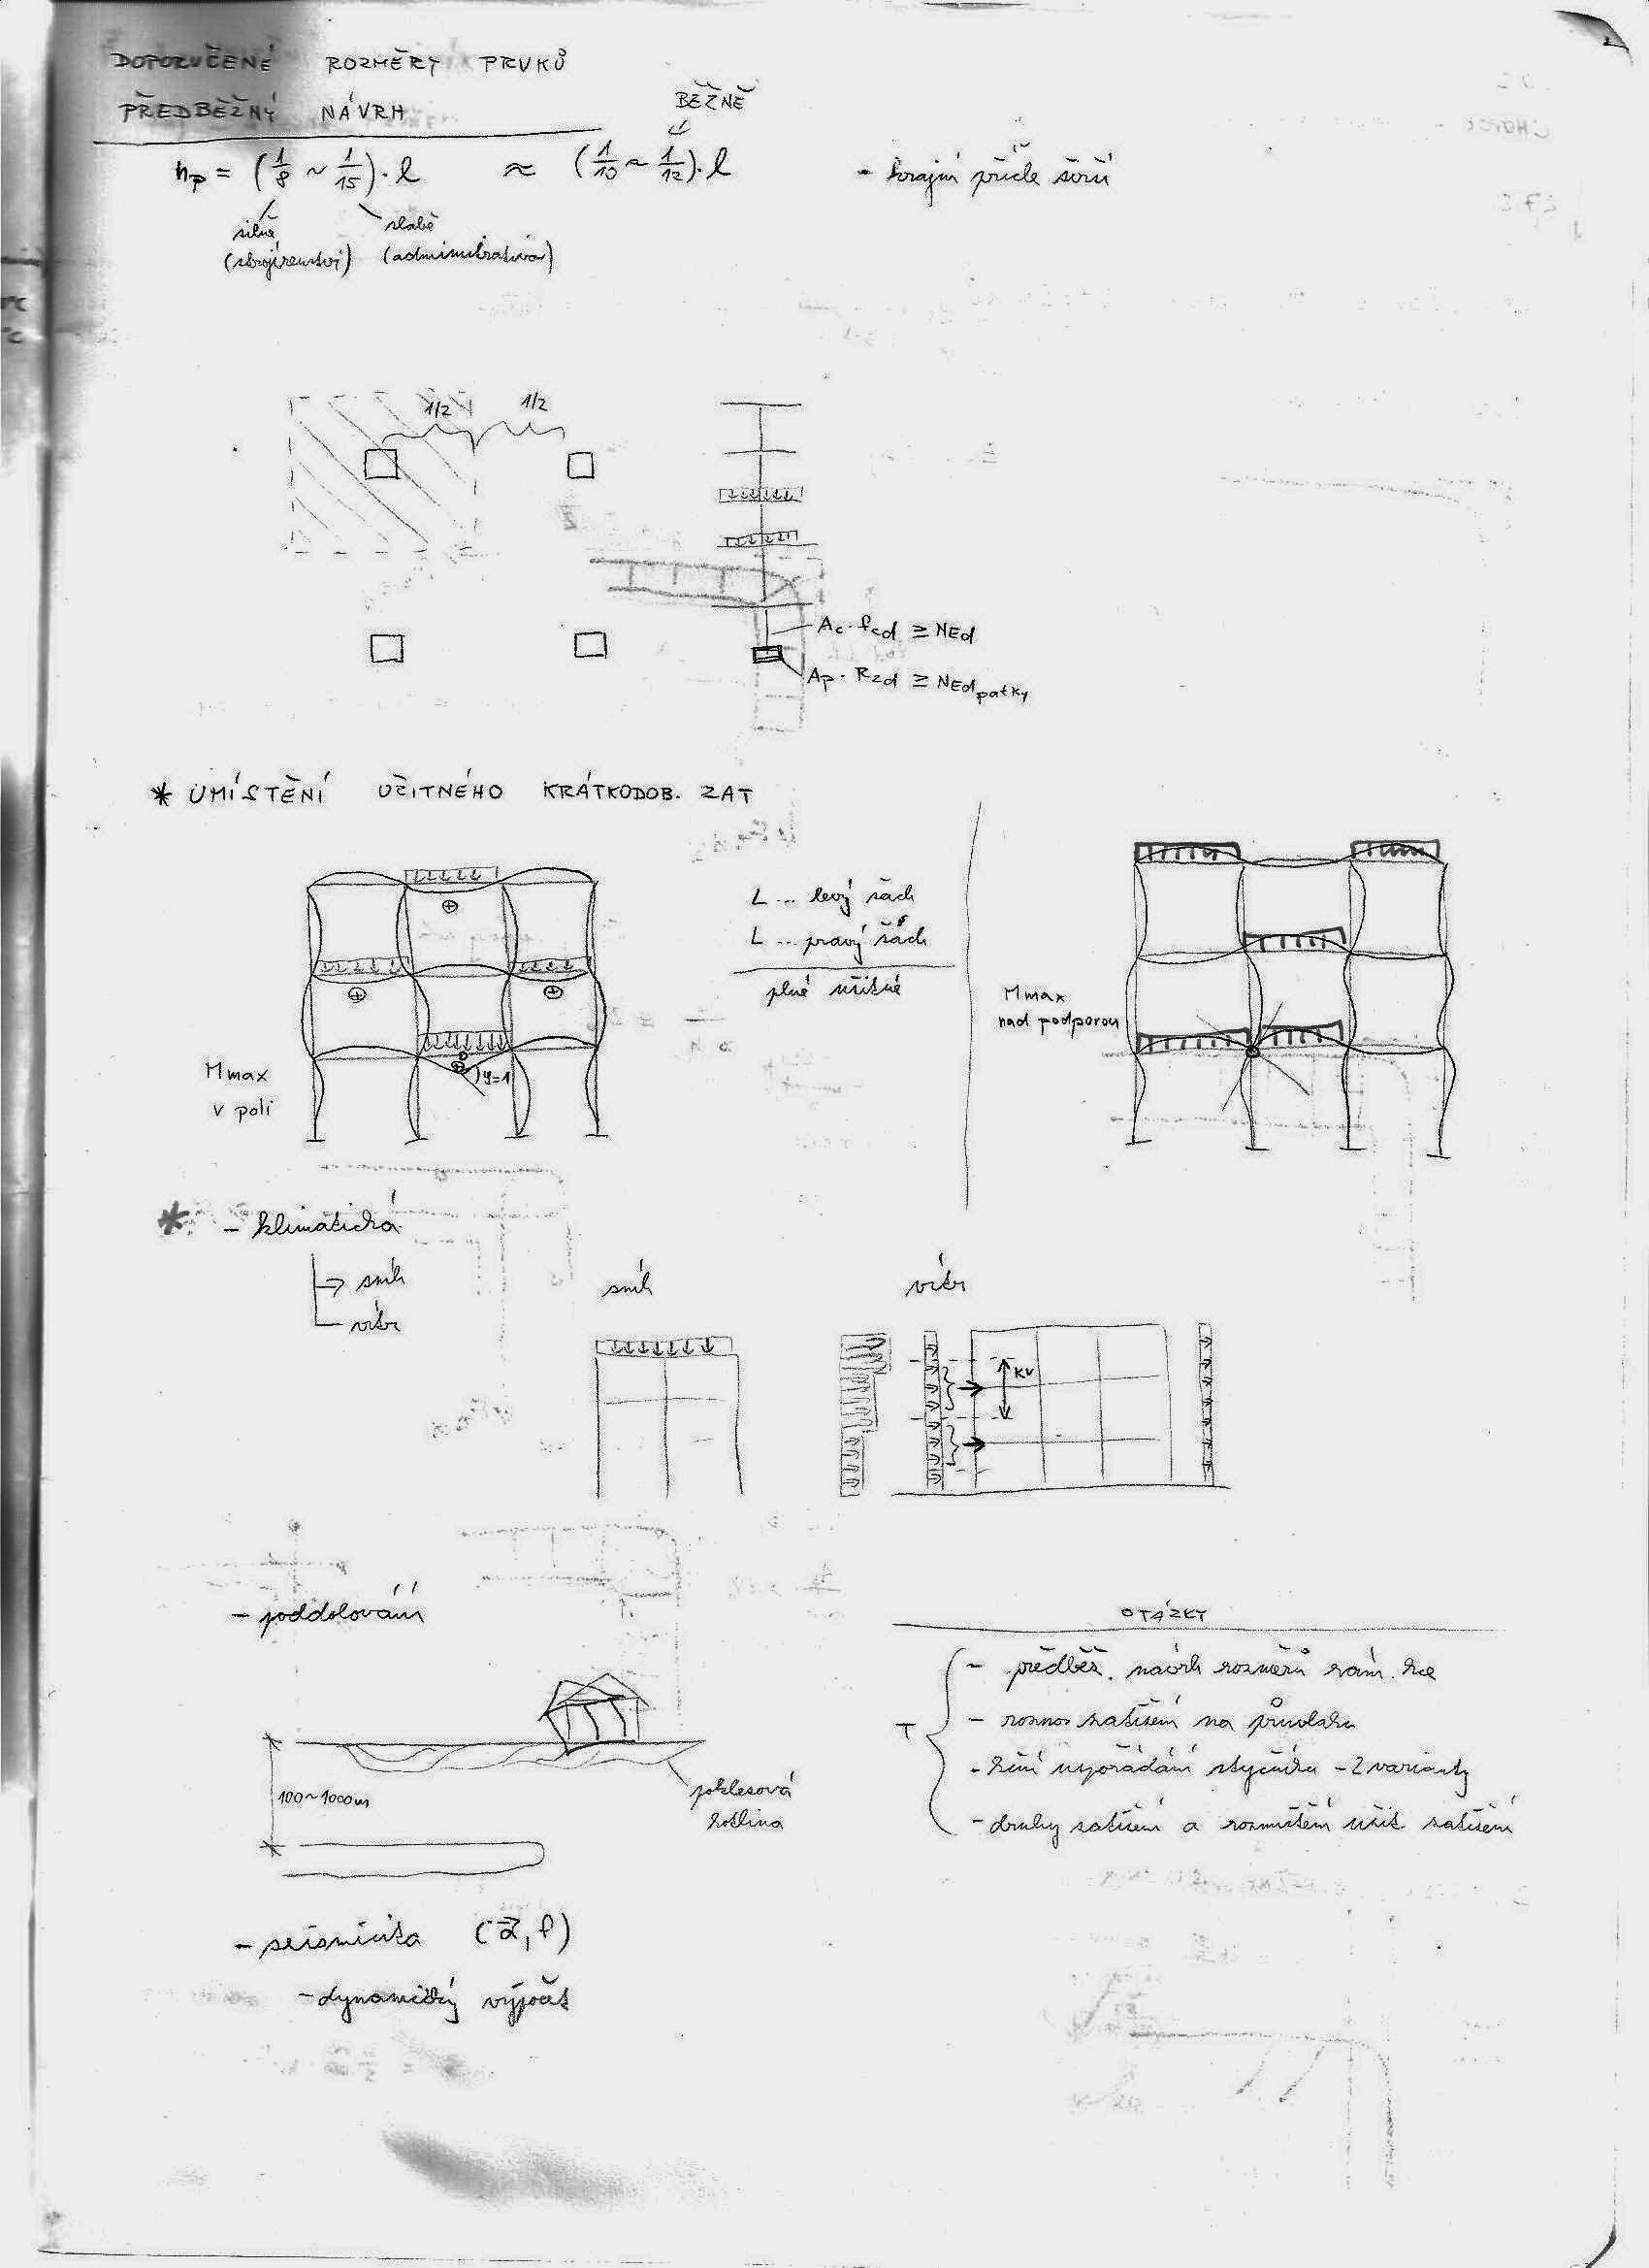 DOPORUČENÉ ROZMĚRY PRVKŮ
PŘEDBĚŽNÝ NÁVRH
BĚŽNĚ
hp = (1/8 ~ 1/15) · l ≈ (1/10 ~ 1/12) · l
- krajní příčle širší
silné
(strojírenství)
slabé
(administrativa)
1/2 1/2
Ac · fcd ≥ NEd
Ap · Rzd ≥ NEd patky
* UMÍSTĚNÍ UŽITNÉHO KRÁTKODOB. ZAT
L ... levý šach
L ... pravý šach
plné užitné
Mmax
v poli
φ=1
Mmax
nad podporou
* - klimatická
sníh
vítr
sníh
vítr
KV
- poddolování
100~1000m
poklesová
kotlina
- seismicita (a, f)
- dynamický výpočet
OTÁZKY
T
- předběž. návrh rozměrů rám. kce
- roznos zatížení na průvlaku
- uspořádání styčníku - 2 varianty
- druhy zatížení a rozmístění užit zatížení